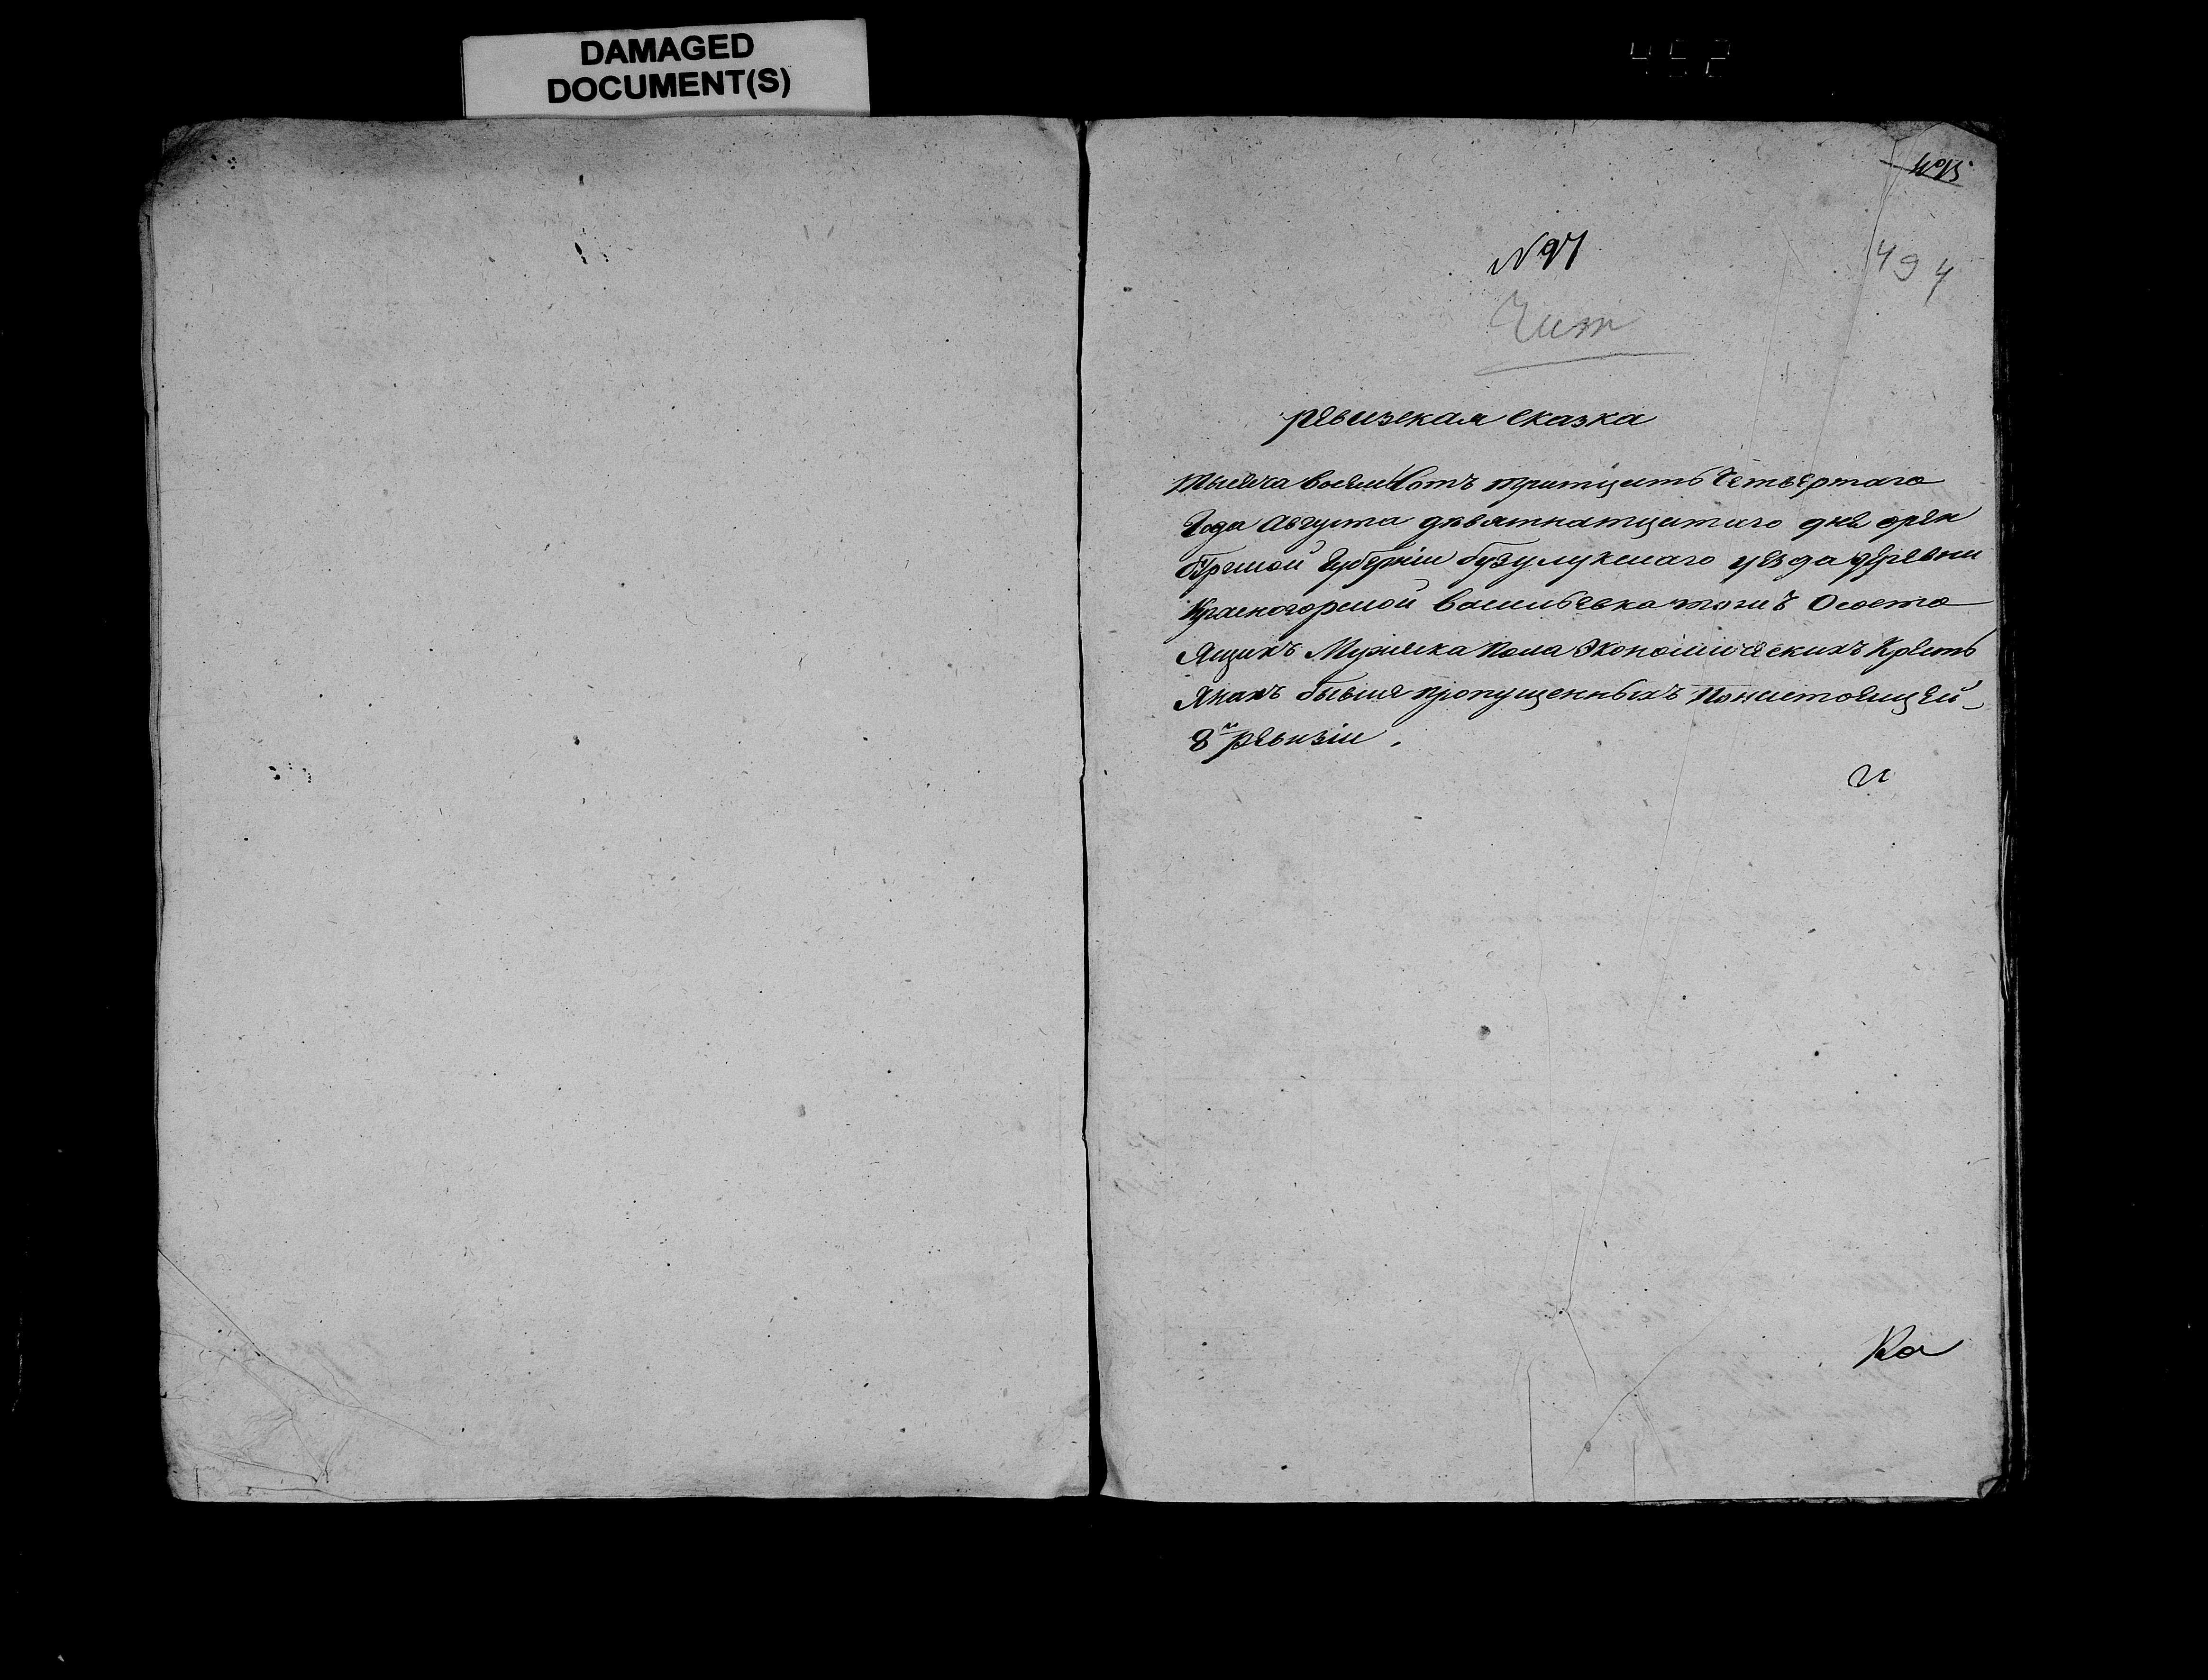 DAMAGED
DOCUMENT(S)
452
495
№ 97
494
Чит
ревизская сказка
Тысяча восемьсотъ притцать четвертаго
Года Августа девятнатцатаго дня орен
бургской Губерніи бузулукскаго уезда деревни
Красногорской Васильевка тожъ О состо
Ящихъ Мужеска пола Экономическихъ Кресть
Янахъ бывшие пропущенныхъ Понастоящей
8й ревизіи.
Ка